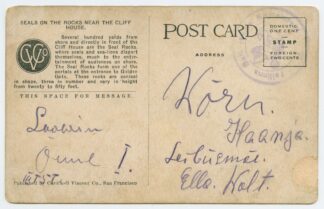 SEALS ON THE ROCKS NEAR THE CLIFF
HOUSE.
Several hundred yards from
shore and directly in front of the
Cliff House are the Seal Rocks,
where seals and sea-lions disport
themselves, much to the enter-
tainment of audiences on shore.
The Seal Rocks form one of the
portals at the entrance to Golden
Gate. These rocks are conical
in shape, three in number and vary in height
from twenty to fifty feet.
THIS SPACE FOR MESSAGE.
Published by Cardinell-Vincent Co., San Francisco
POST CARD
ADDRESS
DOMESTIC
ONE CENT
STAMP
FOREIGN
TWO CENTS
Võru
Haanja
Ella. Wolt.